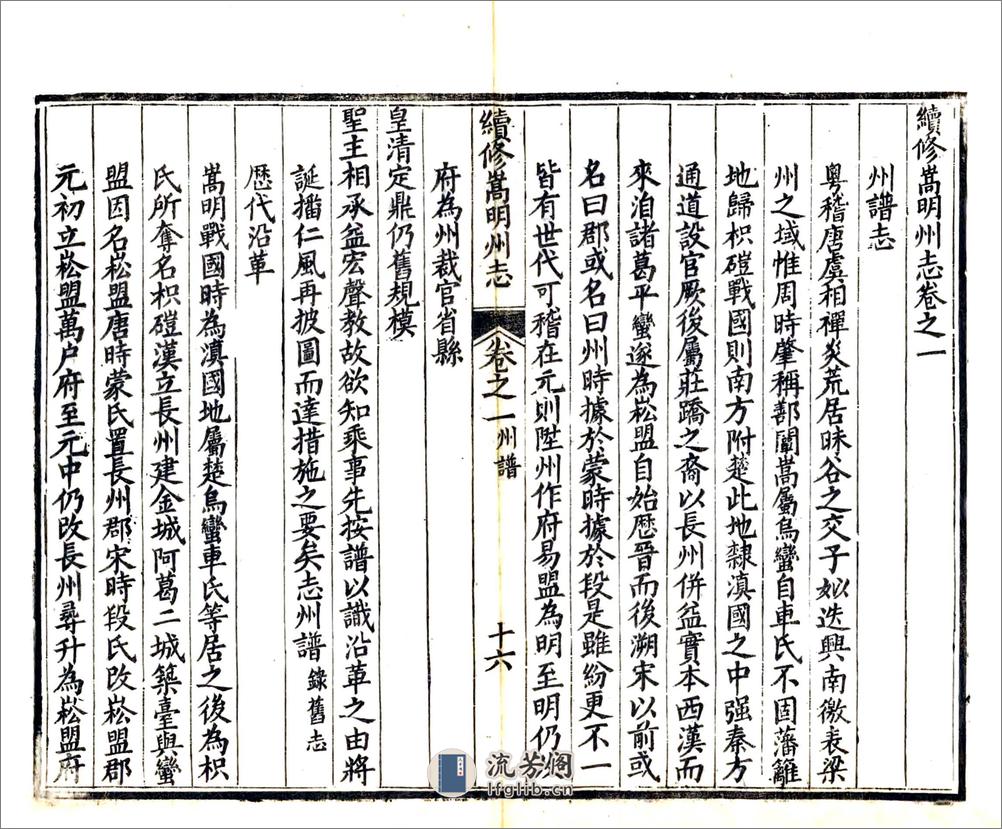 續修嵩明州志卷之一
州譜志
粤稽唐虞相禪炎荒居昧谷之交子姒迭興南徼表梁
州之域惟周時肇稱部闡嵩屬烏蠻自車氏不固藩籬
地歸枳磑戰國則南方附楚此地隸滇國之中强秦方
通道設官厥後屬莊蹻之裔以長州併益實本西漢而
來洎諸葛平蠻遂為崧盟自始歴晉而後溯宋以前或
名曰郡或名曰州時據於蒙時據於段是雖紛更不一
皆有世代可稽在元則陞州作府易盟為明至明仍
續修嵩明州志
卷之一 州譜
十六
府為州裁官省縣
皇清定鼎仍舊規模
聖主相承益宏聲教故欲知乘事先按譜以識沿革之由將
誕播仁風再披圖而達措施之要矣志州譜 錄舊志
歴代沿革
嵩明戰國時為滇國地屬楚烏蠻車氏等居之後為枳
氏所奪名枳磑漢立長州建金城阿葛二城築臺與蠻
盟因名崧盟唐時蒙氏置長州郡宋時段氏改崧盟郡
元初立崧盟萬户府至元中仍改長州尋升為崧盟府
流芳阁
lfglib.cn